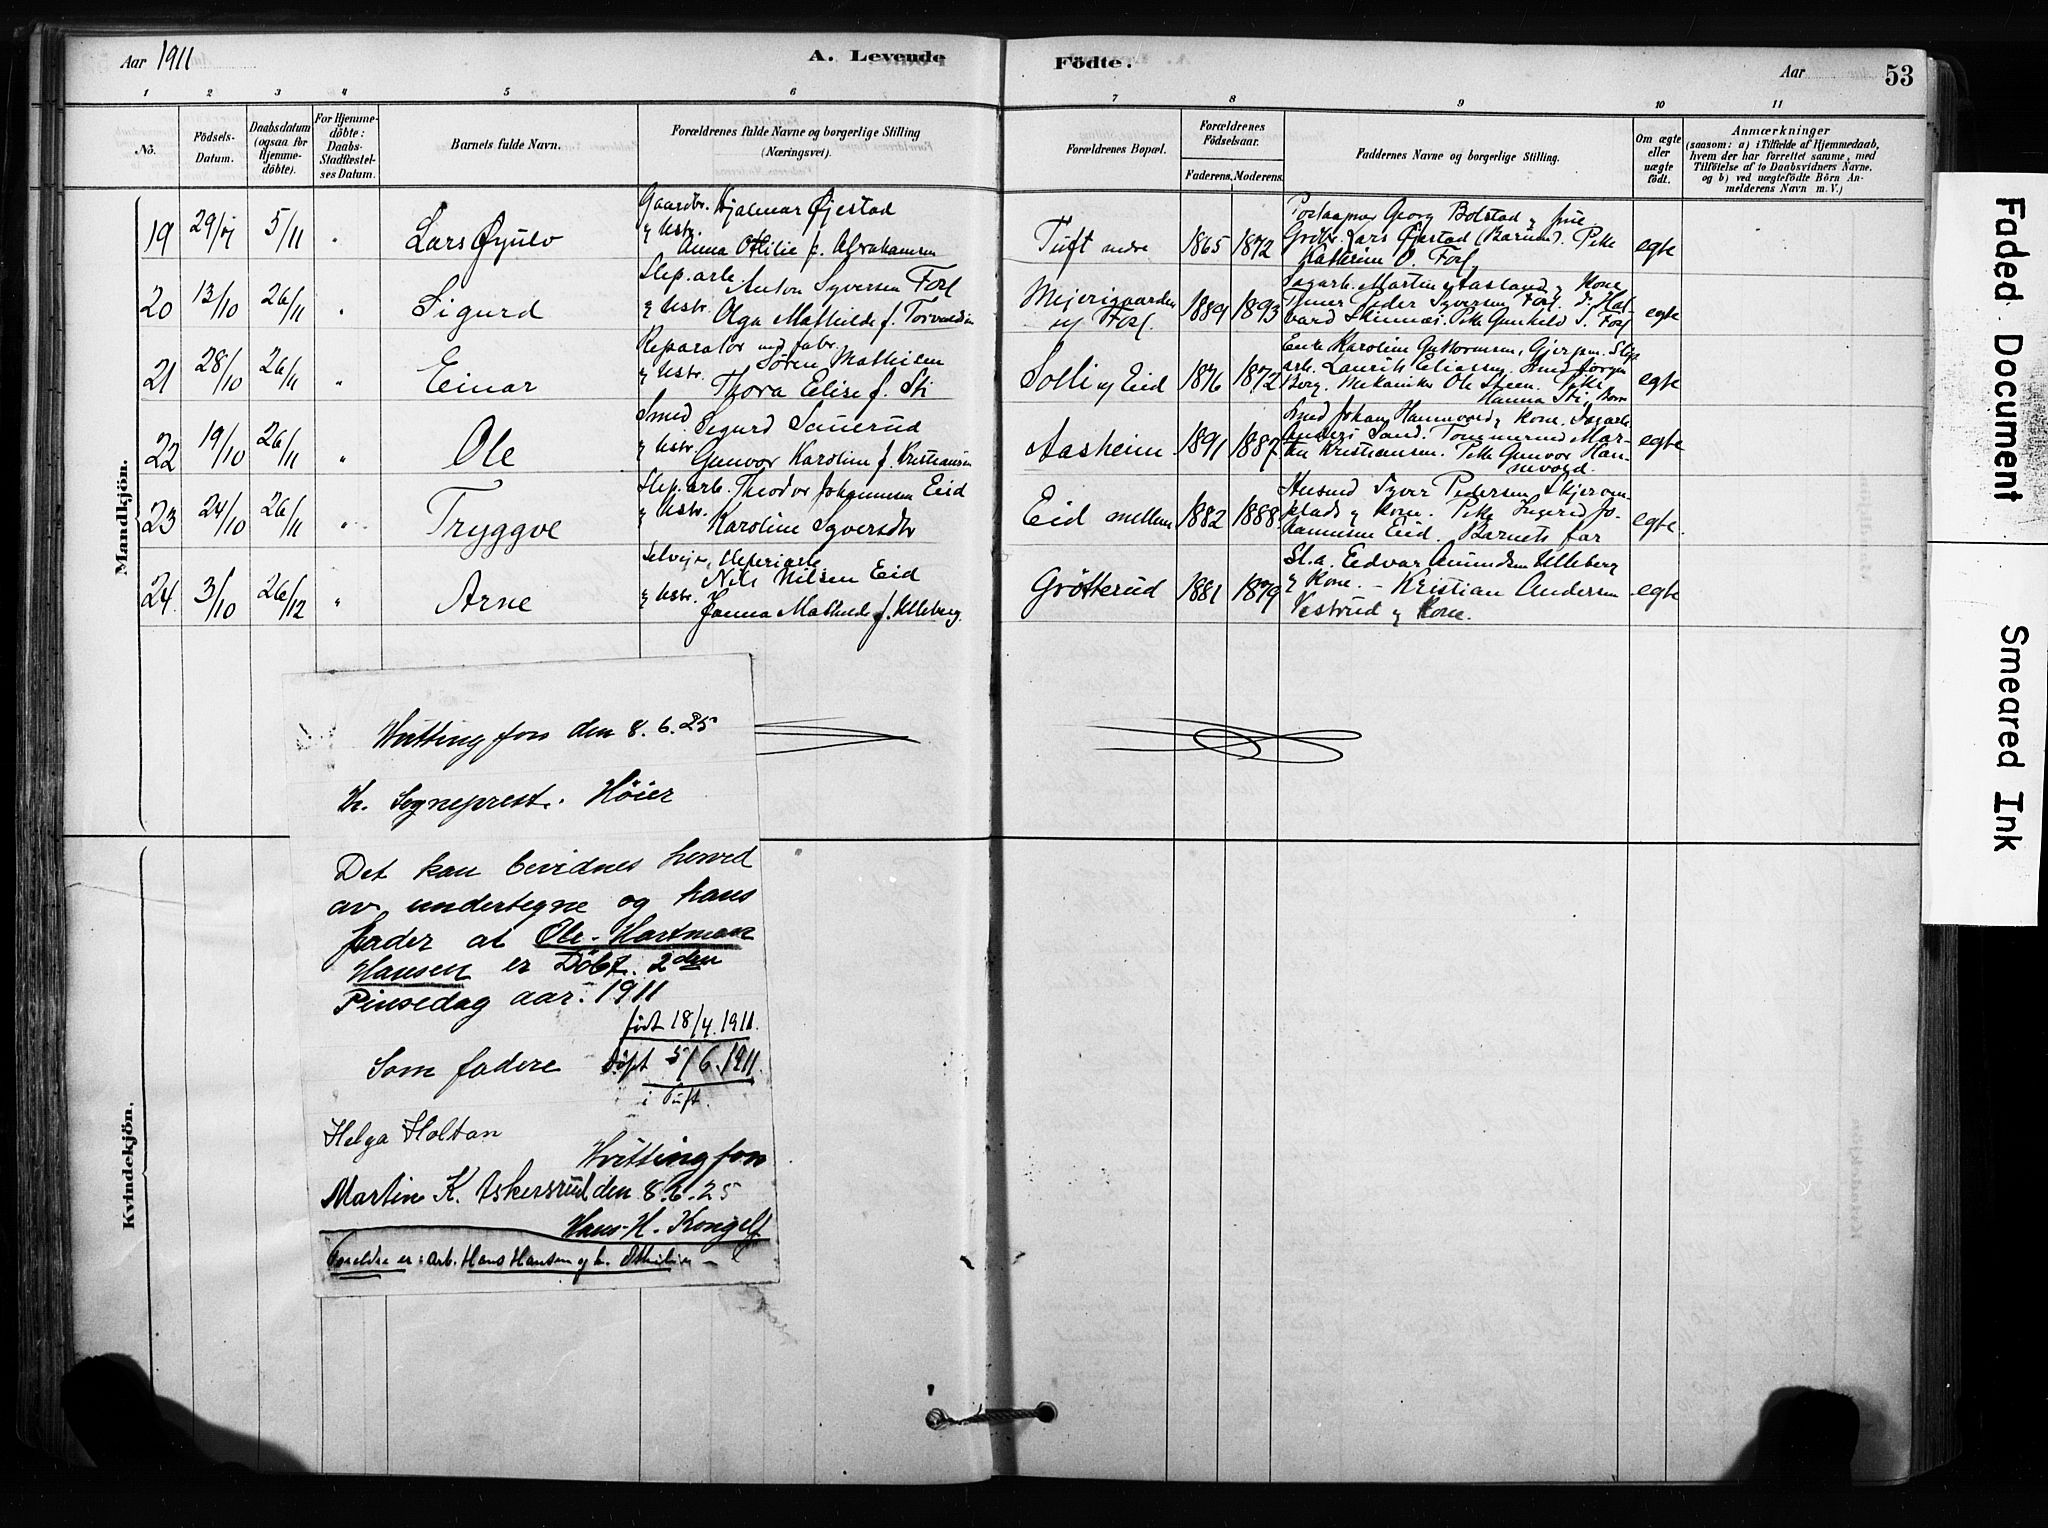 Aar 1911
A. Levende
Födte.
Aar
53
1 2 3 4 5 6 7 8 9 10 11
No.
Födsels-
Datum.
Daabsdatum
(ogsaa for
Hjemme-
döbte).
For Hjemme-
döbte:
Daabs-
Stadfæstel-
ses Datum.
Barnets fulde Navn.
Forældrenes fulde Navne og borgerlige Stilling
(Næringsvei).
Forældrenes Bopæl.
Forældrenes
Födselsaar.
Faderens. Moderens.
Faddernes Navne og borgerlige Stilling.
Om ægte
eller
uægte
födt.
Anmærkninger
(saasom: a) i Tilfælde af Hjemmedaab,
hvem der har forrettet samme, med
Tilföielse af to Daabsvidners Navne,
og b) ved uægtefödte Börn An-
melderens Navn m. V.)
Mandkjön.
19 29/7 5/11 " Lars Øyulv
Gaardbr. Hjalmar Øjestad
y Hstr.
Anna Otilie f. Abrahamsen
Tuft nedre 1865 1872
Georg Bolstad y frue
Lars Øjestad (Bærum). Pike
egte
20 13/10 26/11 " Sigurd
Slip.arb. Anton Syversen Fosf
y Hstr. Olga Mathilde f. Torvaldsen
Mejerigaarden
1889 1893
Sagarb. Martin Aasland y Kone
Peder Syversen
egte
21 28/10 26/11 " Einar
Reparatør ved fabr.
Søren Mathisen
y Hstr. Thora Elise f. Sti
Solli y Eid 1876 1872
Enke Karoline Guttormsen, Gjerpen. Slip
arb. Laurits Eliassen
Borg. Mekaniker Ole Steen. Pike
Hanna Sti,
egte
22 19/10 26/11 " Ole
Smed Sigurd Sauerud
y Hstr. Gunvor Karoline f. Kristiansen
Aasheim 1891 1887
Smed Johan Hannevold y Kone. Sagarb
Anders Sand. Tømmermd Mar-
tin Kristiansen. Pike Gunvor Han-
nevold.
egte
23 24/10 26/11 " Tryggve
Slip.arb. Theodor Johannesen Eid
y Hstr. Karoline Syversdtr
Eid mellem 1882 1888
Husmd Syver Pedersen Skjerven-
plads y Kone. Pike Ingerid Jo-
hannesen Eid. Barnets far
egte.
24. 3/10 26/12 " Arne
Selvejer, Sliperiarb
Nils Nilsen Eid
y Hstr. Hanna Mathilde f. Ulleberg.
Grøtterud 1881 1879
Sl.a. Edvar Amundsen Ulleberg
y Kone. - Kristian Andersen
Vestrud y Kone.
egte
Kvindekjön.
Hvittingfoss den 8.6.25
Hr. Sogneprest. Höier
Det kan bevidnes herved
av undertegne og hans
fader at Ole-Hartman
Hansen er Döbt. 2den
Pinsedag aar. 1911
født 18/4.1911.
Som fadere Døpt 5/6.1911.
i Tuft.
Helga Holtan
Hvittingfoss
Martin K. Askersrud den 8.6.25
Hans-H. Kongelf
Foreldre er: Arb. Hans Hansen og h. Othilie
Faded Document
Smeared Ink